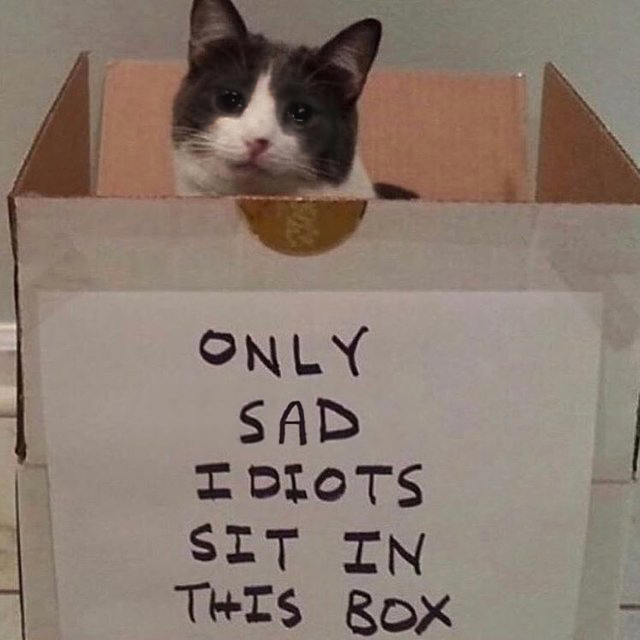 ONLY
SAD
IDIOTS
SIT IN
THIS BOX